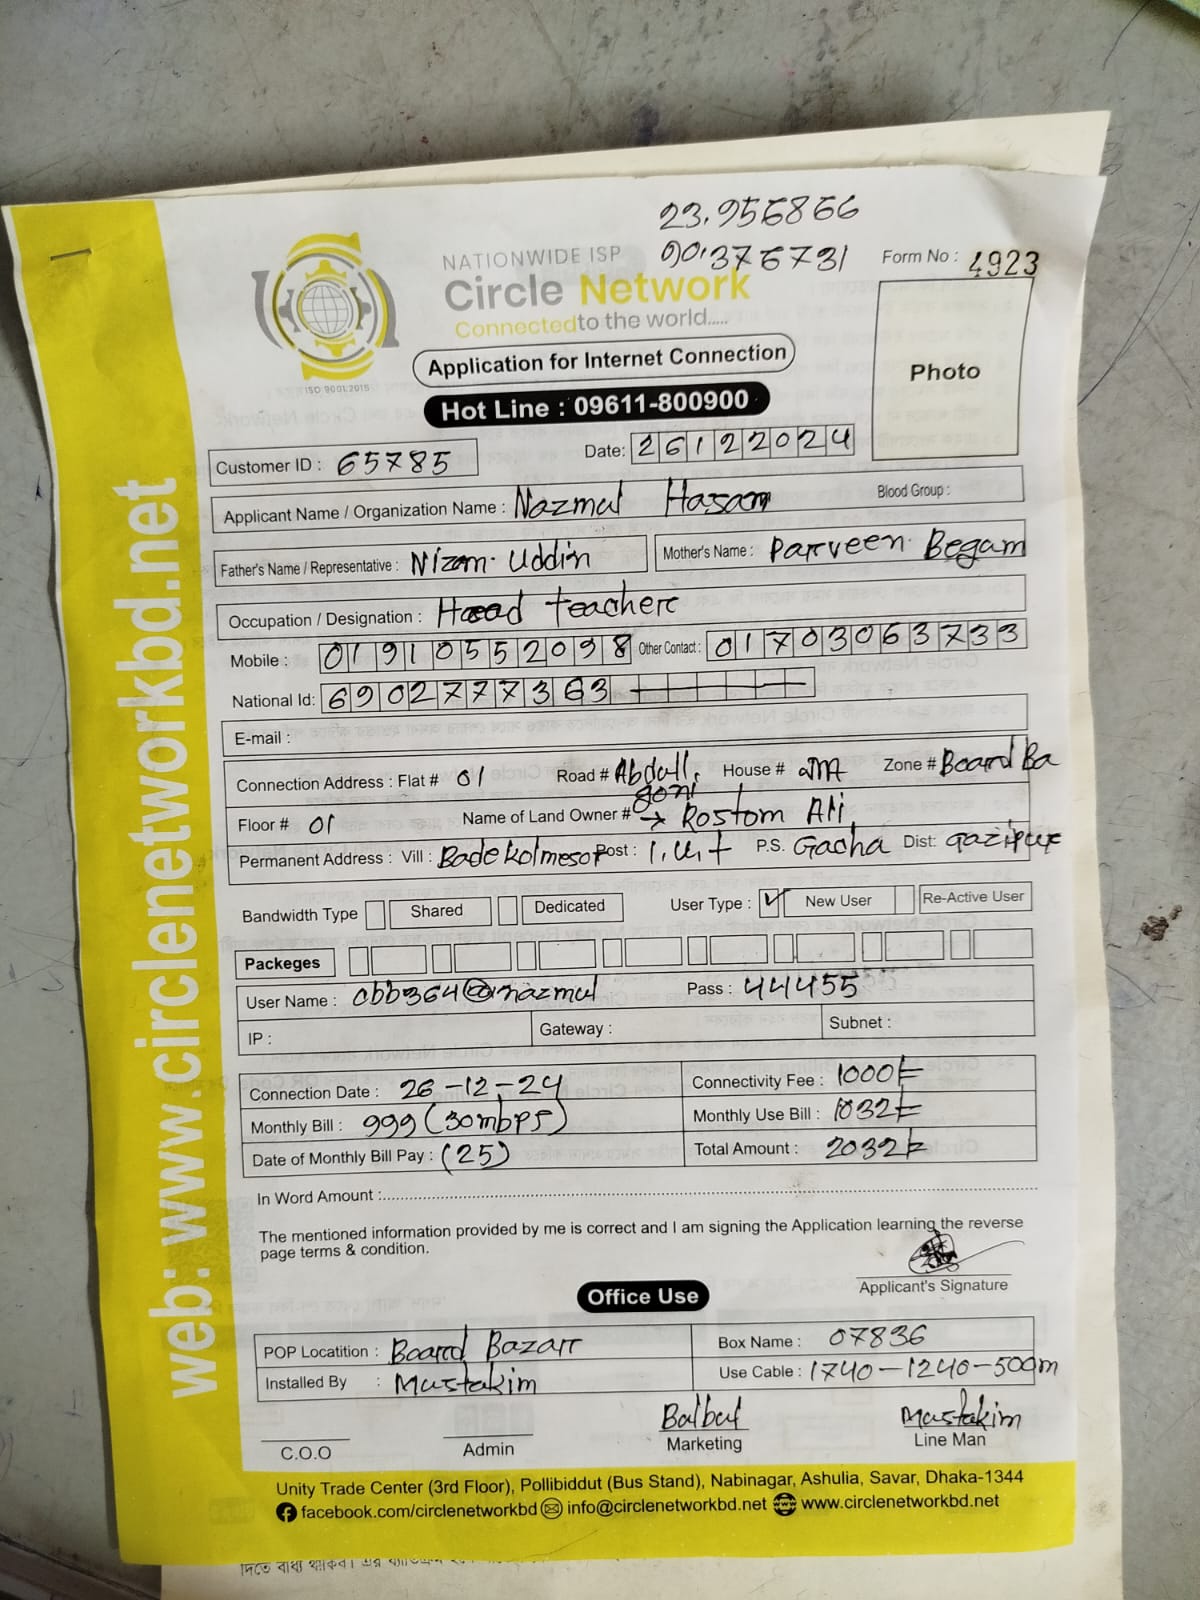 23.956866
90.376731
NATIONWIDE ISP
Circle Network
Connected to the world.....
Form No : 4923
ISO 9001:2015
Application for Internet Connection
Photo
Hot Line : 09611-800900
Customer ID : 65785 Date: 26122024
Applicant Name / Organization Name : Nazmul Hasan Blood Group :
Father's Name / Representative : Nizam Uddin Mother's Name : Parveen Begam
Occupation / Designation : Head teacher
Mobile : 01910552098 Other Contact : 01703063733
National Id: 6902777363
E-mail :
Connection Address : Flat # 01 Road # Abdull goni House # Zone # Board Ba
Floor # 01 Name of Land Owner # → Rostom Ali
Permanent Address : Vill : Badekolmesor Post : I.U.T P.S. Gacha Dist: Gazipur
Bandwidth Type Shared Dedicated User Type : ✓ New User Re-Active User
Packeges
User Name : cbb364@nazmul Pass : 44455
IP : Gateway : Subnet :
Connection Date : 26-12-24 Connectivity Fee : 1000/=
Monthly Bill : 999 (30mbps) Monthly Use Bill : 1032/=
Date of Monthly Bill Pay : (25) Total Amount : 2032/=
In Word Amount :
The mentioned information provided by me is correct and I am signing the Application learning the reverse
page terms & condition.
Applicant's Signature
Office Use
POP Locatition : Board Bazar Box Name : 07836
Installed By : Mustakim Use Cable : 1740-1240-500m
Balbul Mustakim
C.O.O Admin Marketing Line Man
Unity Trade Center (3rd Floor), Pollibiddut (Bus Stand), Nabinagar, Ashulia, Savar, Dhaka-1344
facebook.com/circlenetworkbd info@circlenetworkbd.net www.circlenetworkbd.net
web: www.circlenetworkbd.net
দিতে বাধ্য থাকিব।